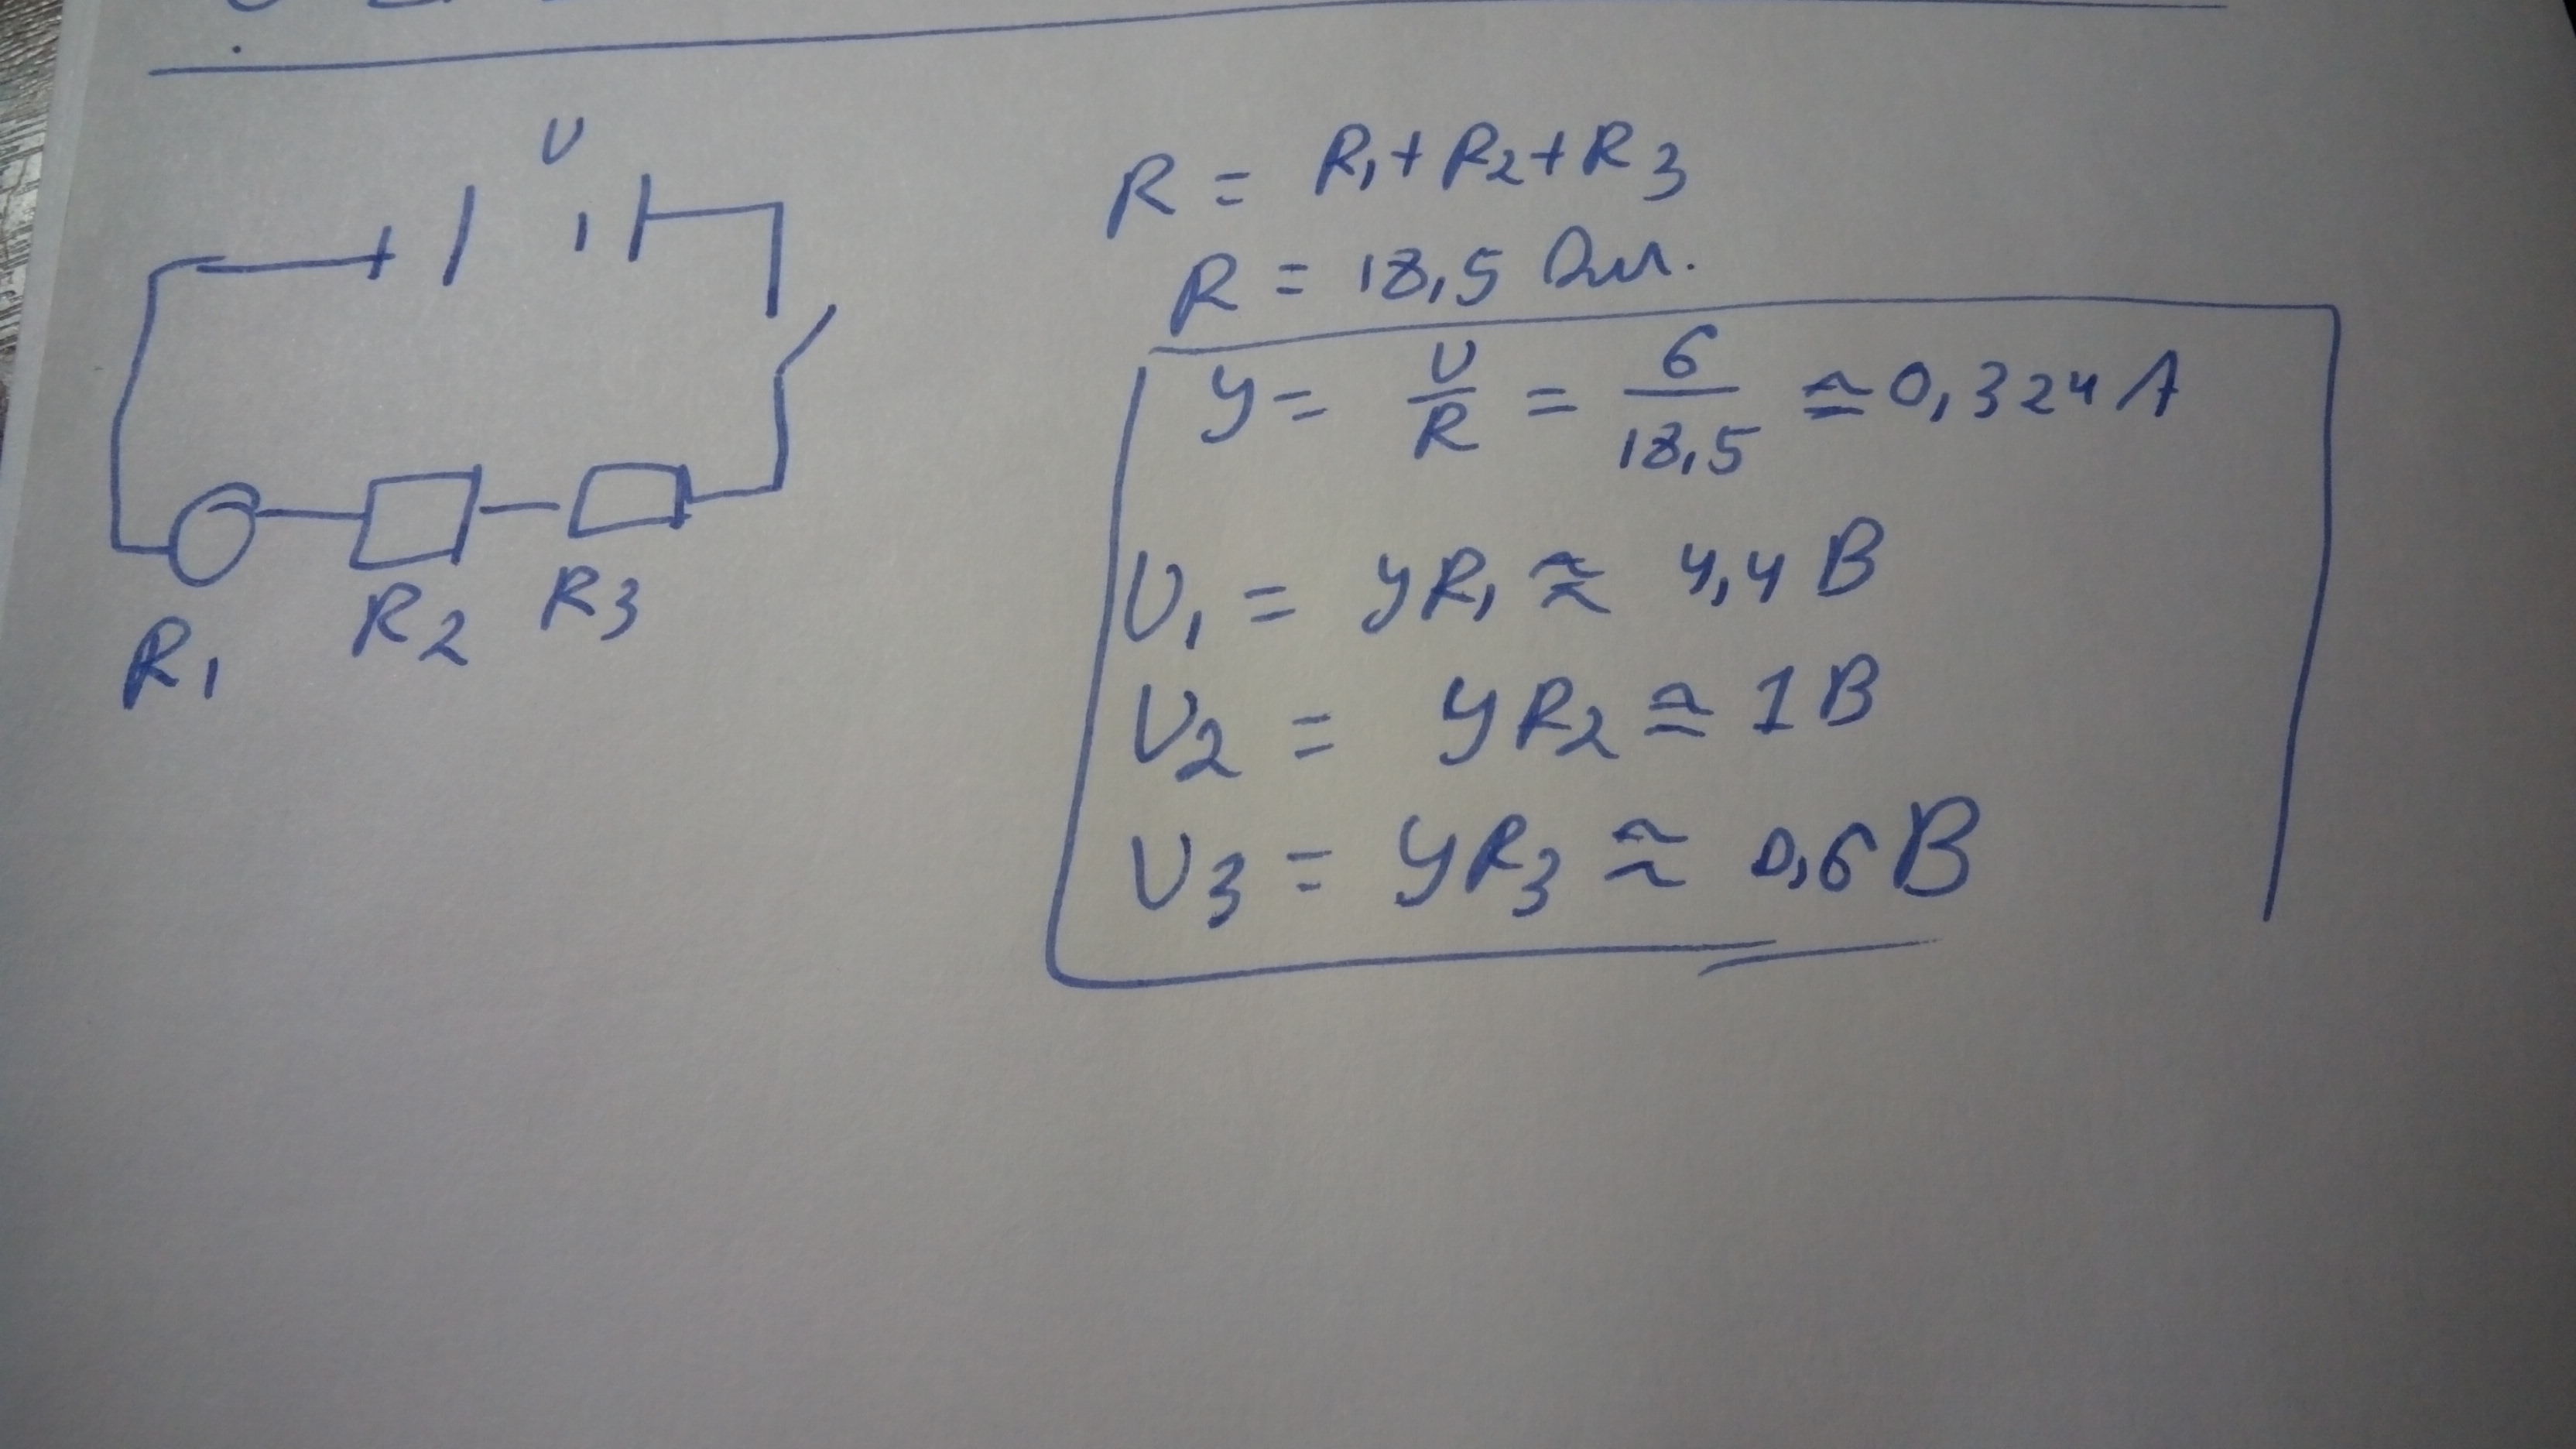 U
R1
R2
R3
R = R1 + R2 + R3
R = 18,5 Ом.
У = U/R = 6/18,5 ≅ 0,324 А
U1 = УR1 ≈ 4,4 В
U2 = УR2 ≅ 1 В
U3 = УR3 ≈ 0,6 В